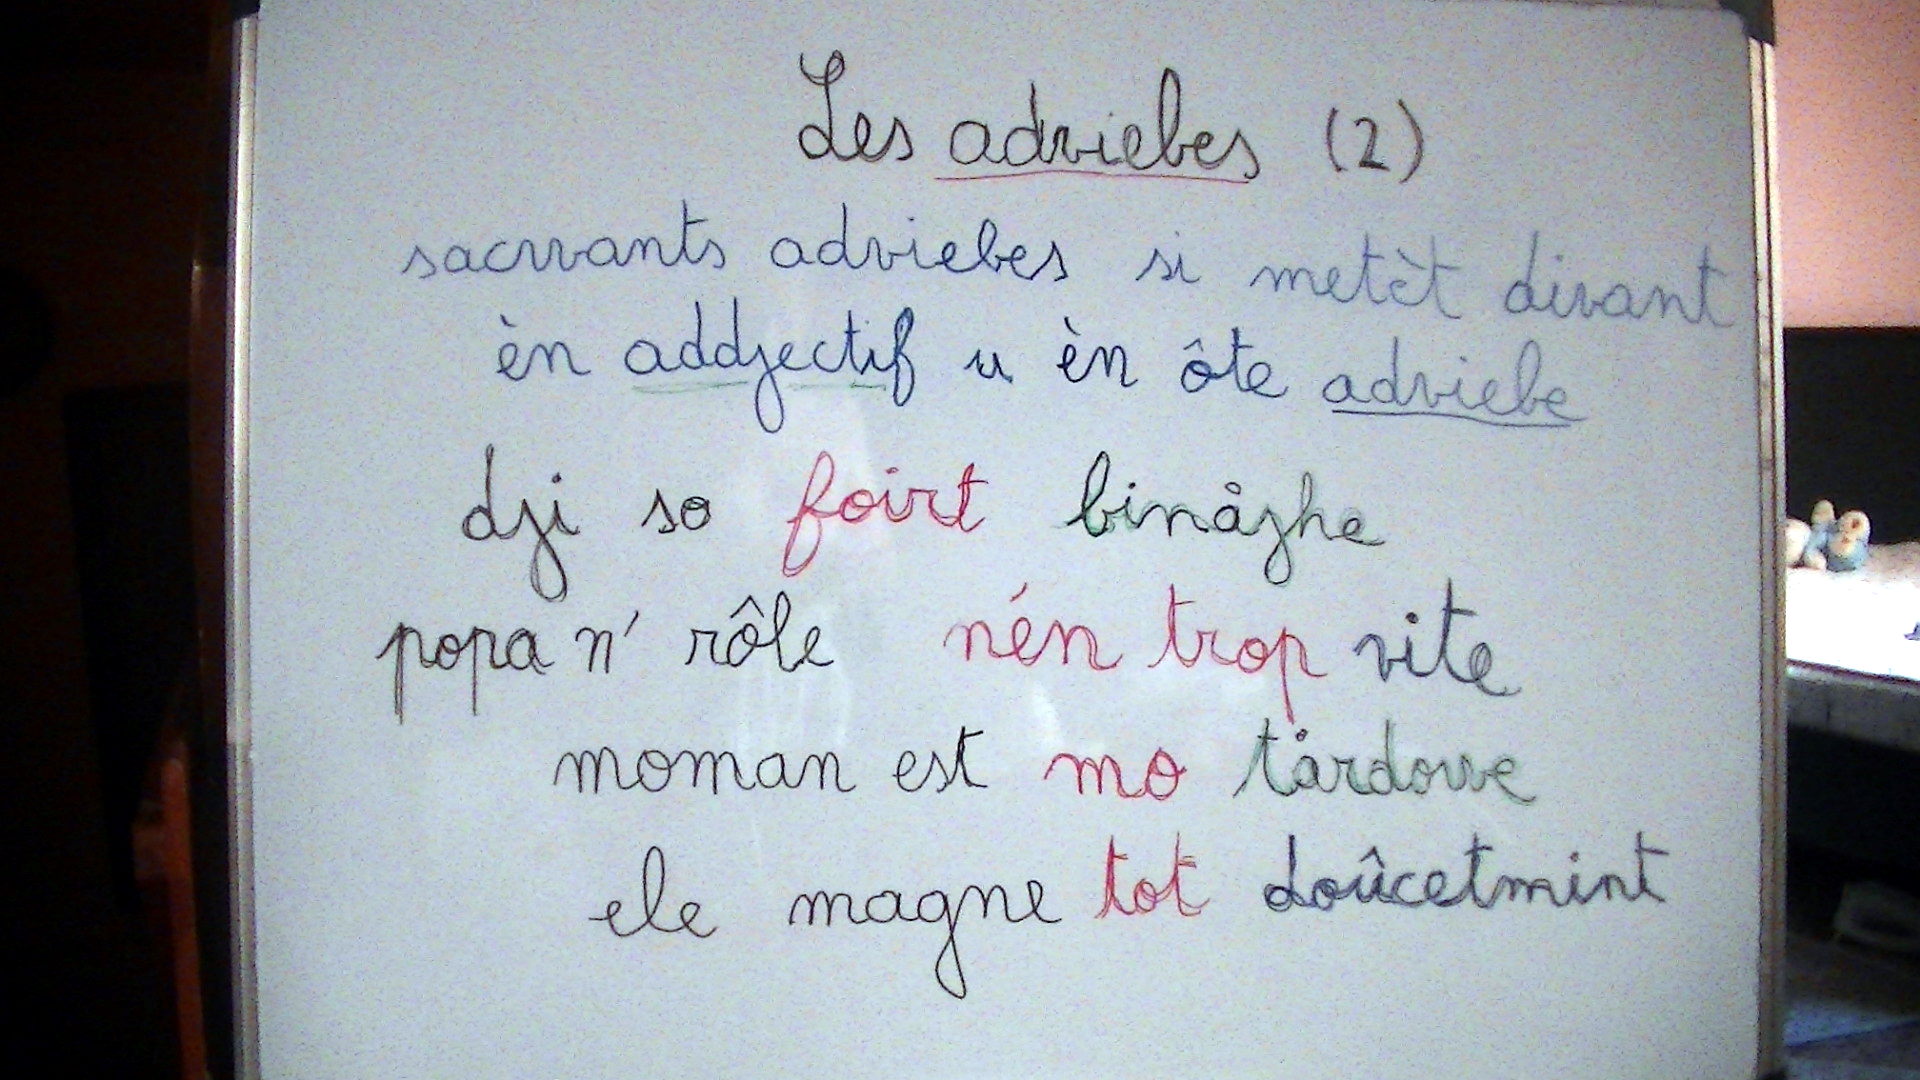 Les adviebes (2)
sacwants adviebes si metèt divant
èn addjectif u èn ôte adviebe
dji so foirt binåjhe
popa n' rôle nén trop vite
moman est mo tårdowe
ele magne tot doûcetmint